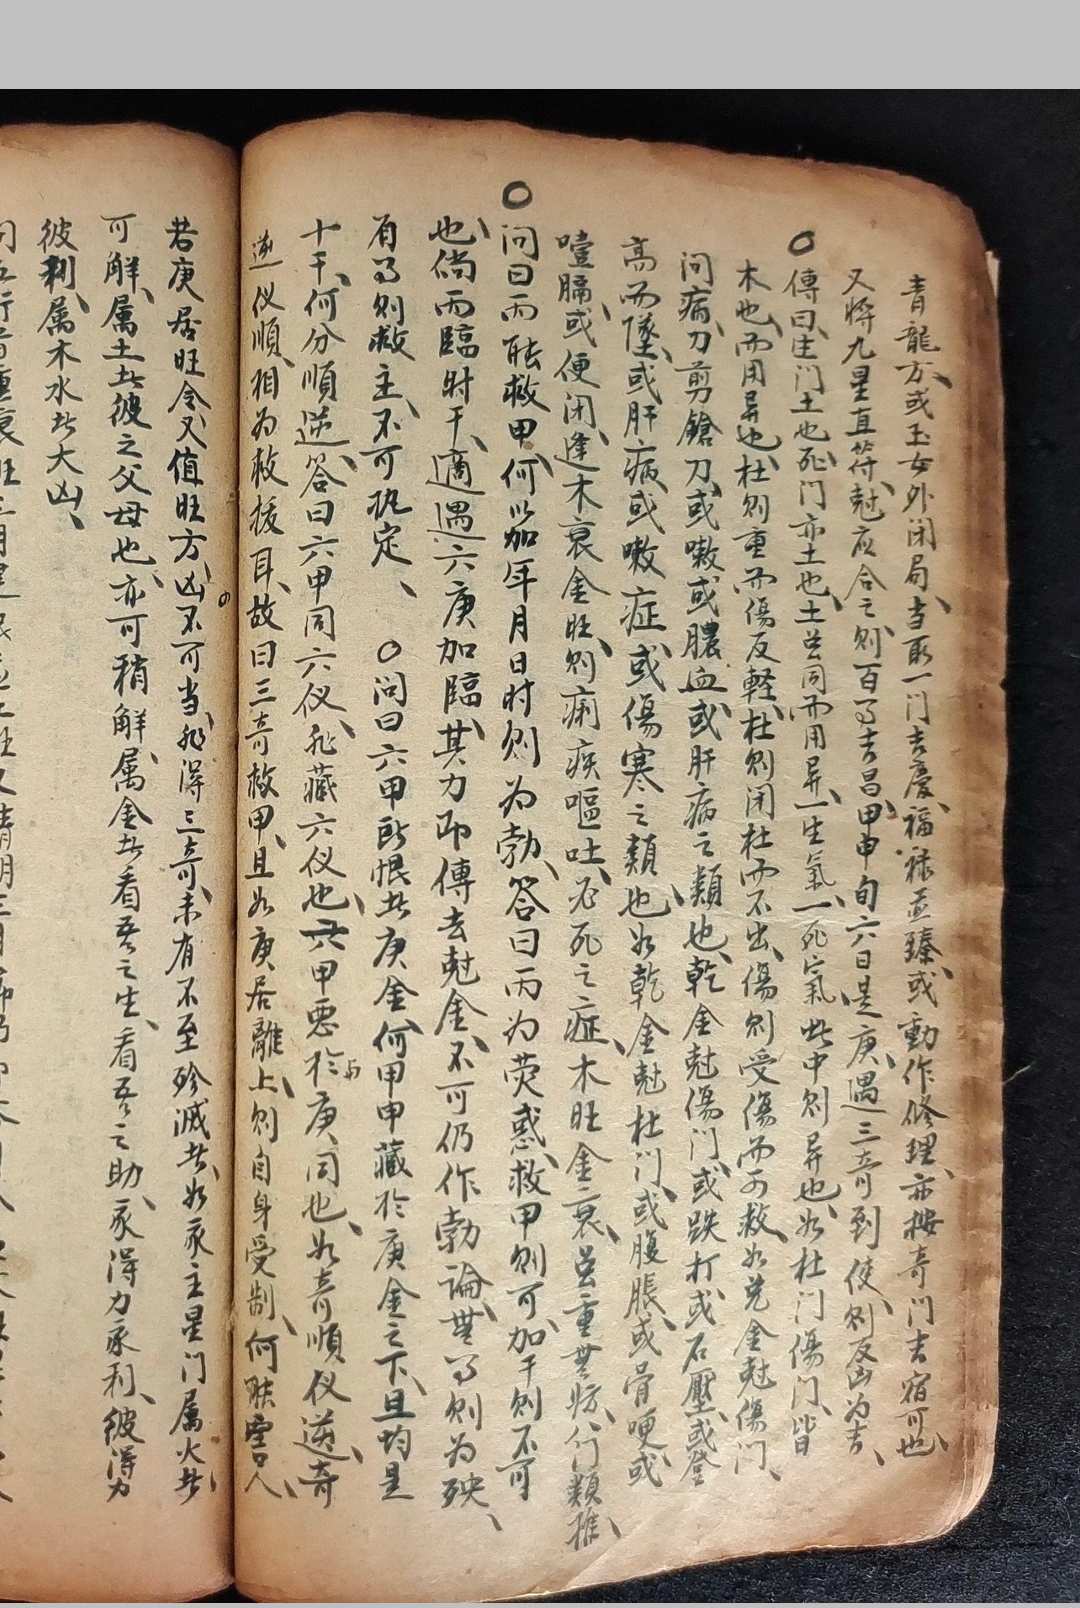 青龍方、或玉女外闭局、当取一门吉慶、福禄並臻、或動作修理、亦按奇门吉宿可也、
又將九星直符尅应合之、则百事吉昌、甲申旬六日是庚、遇三奇到使、则反凶为吉、
○傳曰、生门土也、死门亦土也、土总同而用异、一生氣、一死氣、此中则异也、如杜门傷门、皆
木也、而用异也、杜则重而傷反軽、杜则闭杜而不出、傷则受傷而可救、如兑金尅傷门、
问病、刀剪鎗刀、或嗽或膿血、或肝病之類也、乾金尅傷门、或跌打、或石壓、或登
高而墜、或肝病、或嗽症、或傷寒之類也、如乾金尅杜门、或腹脹、或骨哽、或
噎膈、或便闭、逢木衰金旺、则痢疾嘔吐、必死之症、木旺金衰、总重無妨、行類推、
○问曰、丙能救甲、何以加年月日时则为勃、答曰、丙为荧惑、救甲则可、加干则不可
也、倘丙臨时干、適遇六庚加臨、其力即傳去尅金、不可仍作勃論、無事则为殃、
有事则救主、不可执定、 ○问曰、六甲所恨者庚金、何甲申藏於庚金之下、且均是
十干、何分順逆、答曰、六甲同六仪、飛藏六仪也、六甲恶於庚同也、如奇順仪逆、奇
逆仪順、相为救援耳、故曰三奇救甲、且如庚居離上、则自身受制、何
若庚居旺令、又值旺方、凶不可当、非得三奇、未有不至殄滅者、如家主星门属火者
可解、属土者、彼之父母也、亦可稍解、属金者、看吾之生、看吾之助、家得力家利、彼得力
彼利、属木水者大凶、